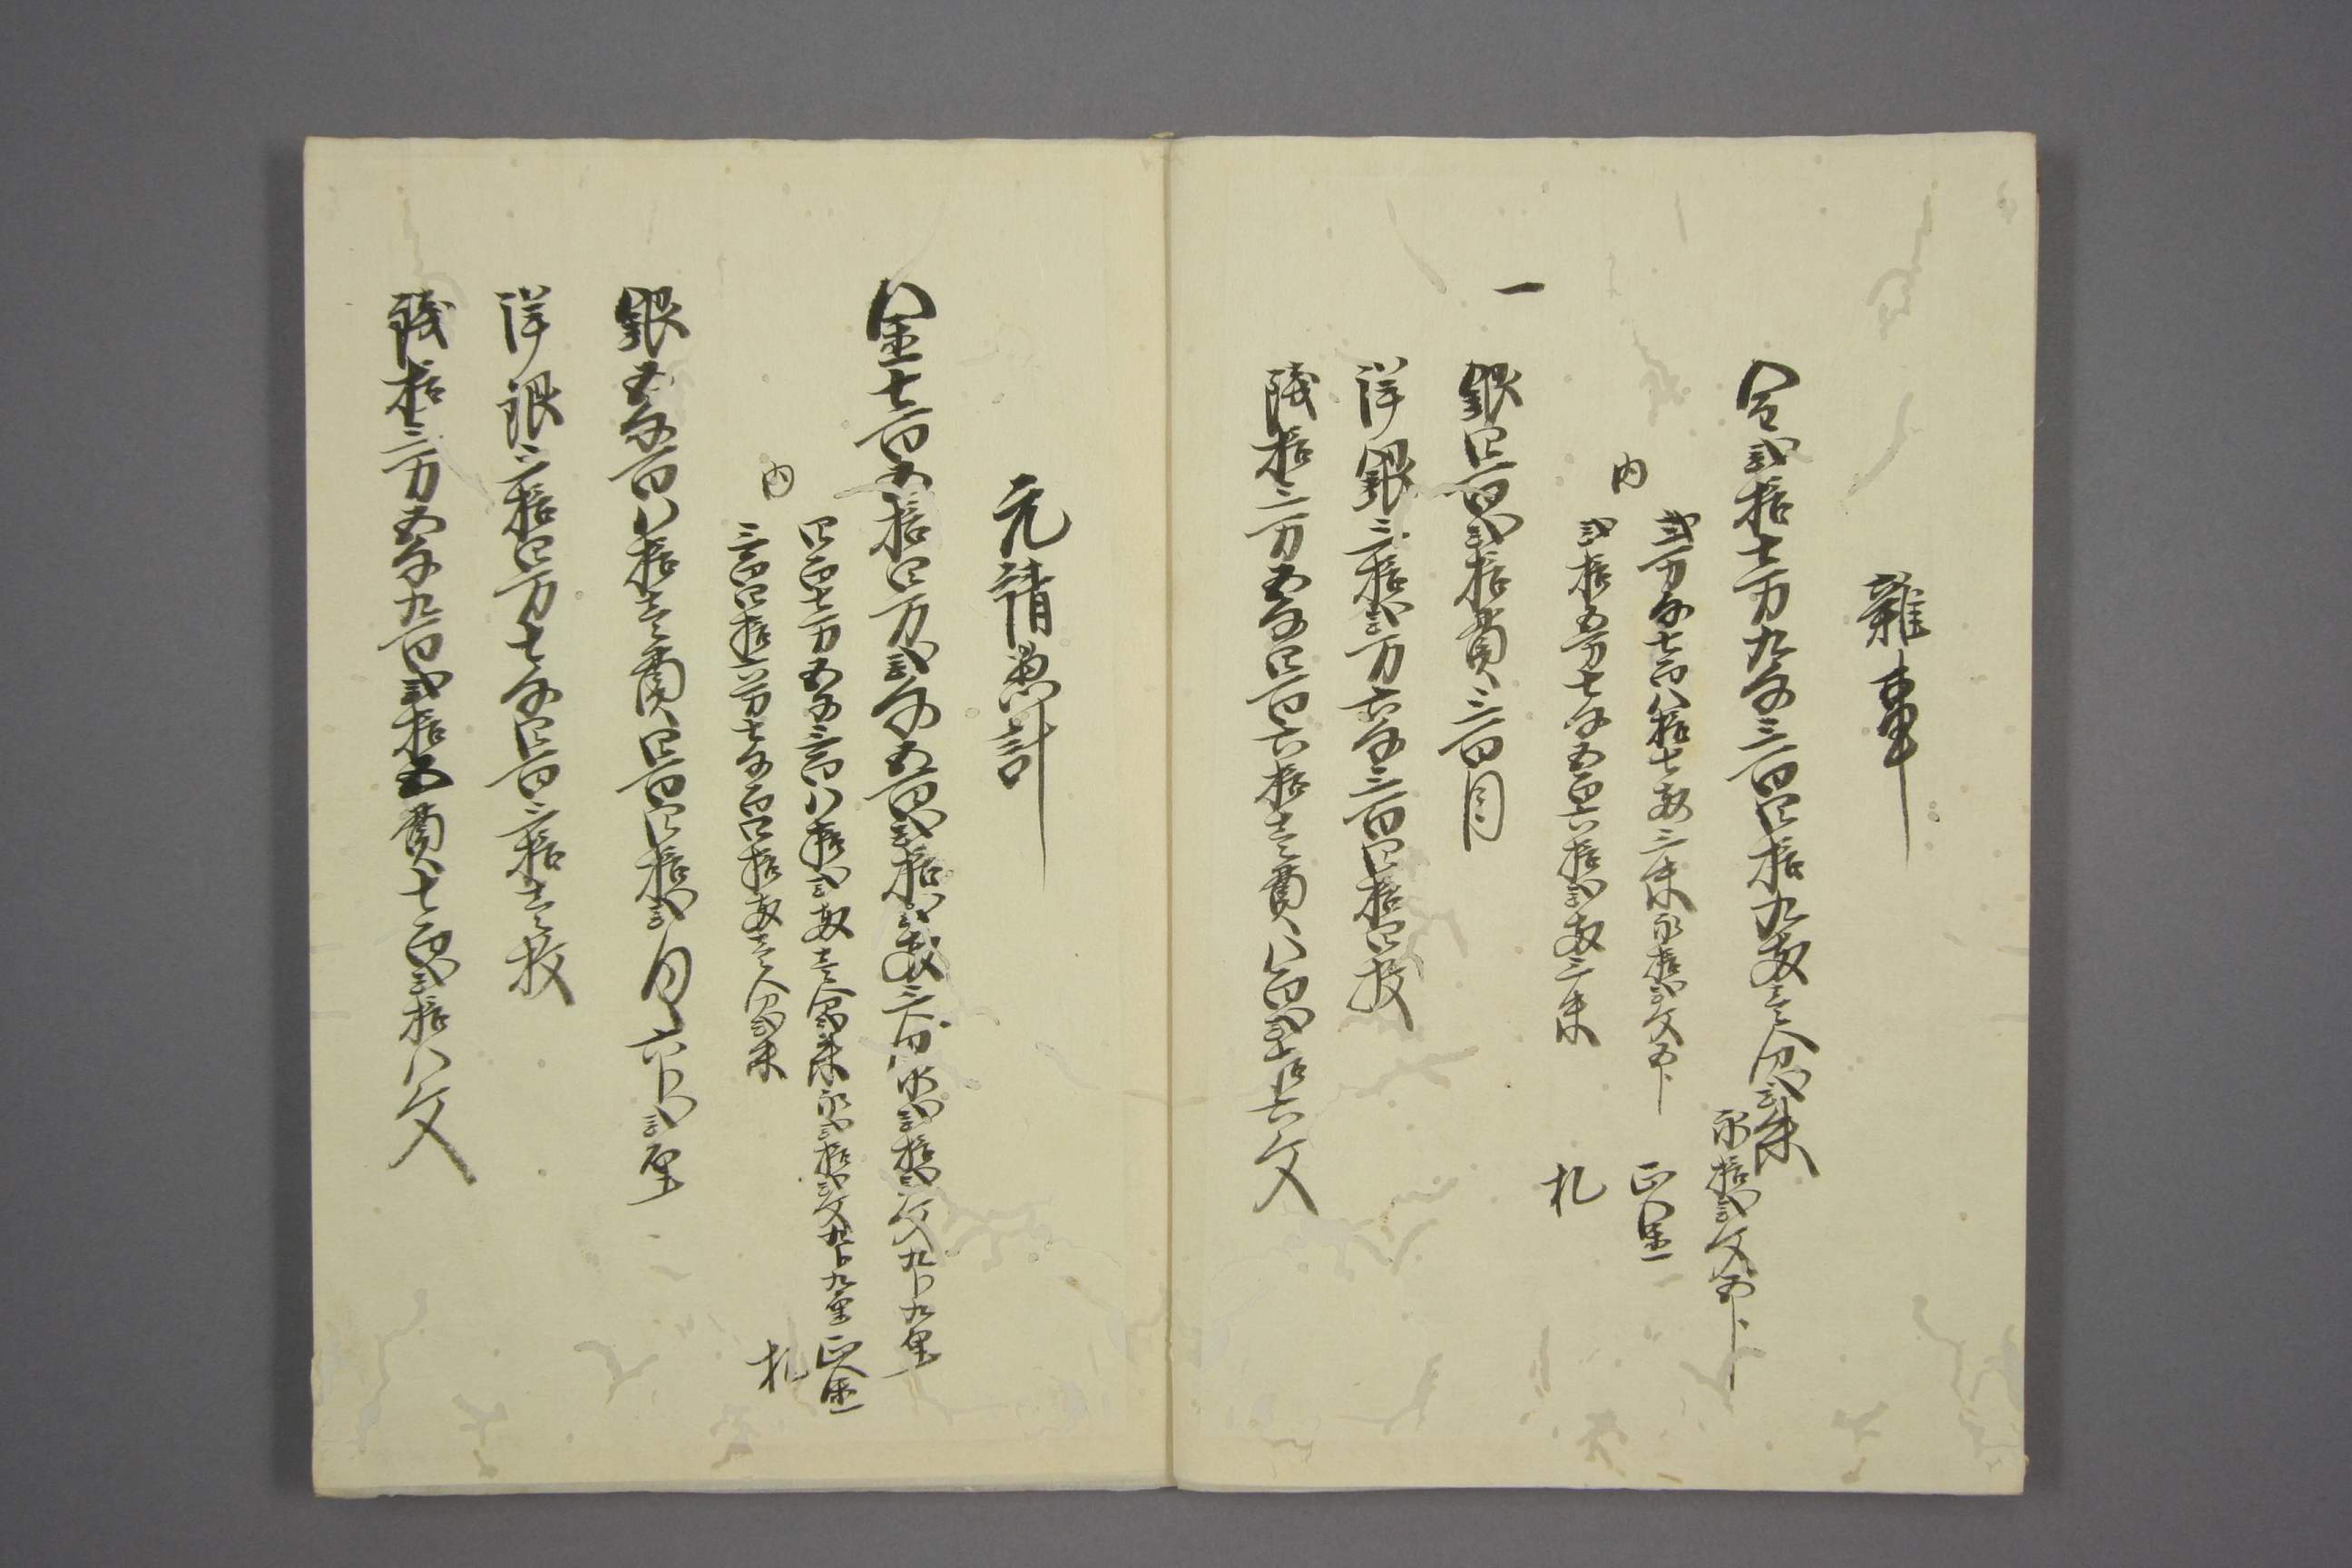 雑事
金弐拾七万九千三百四拾九両壱分弐朱
永拾弐文五分
内
弐万千七百八拾七両三朱永拾弐文五分
正金
弐拾五万七千五百六拾弐両三朱
札
一
銀四百弐拾貫三百目
洋銀三拾弐万六千三百四拾四枚
銭拾三万五千四百六拾壱貫八百弐拾六文
元請惣計
金七百五拾四万弐千五百弐拾弐両三分永弐拾弐文九分九厘
内
四百七万五千三百八拾弐両壱分弐朱永弐拾弐文九分九厘
正金
三百四拾六万七千百四拾両壱分弐朱
札
銀五千百八拾壱貫四百四拾弐匁六分弐厘
洋銀三拾四万七千四百三拾壱枚
銭拾三万五千九百弐拾五貫七百弐拾八文